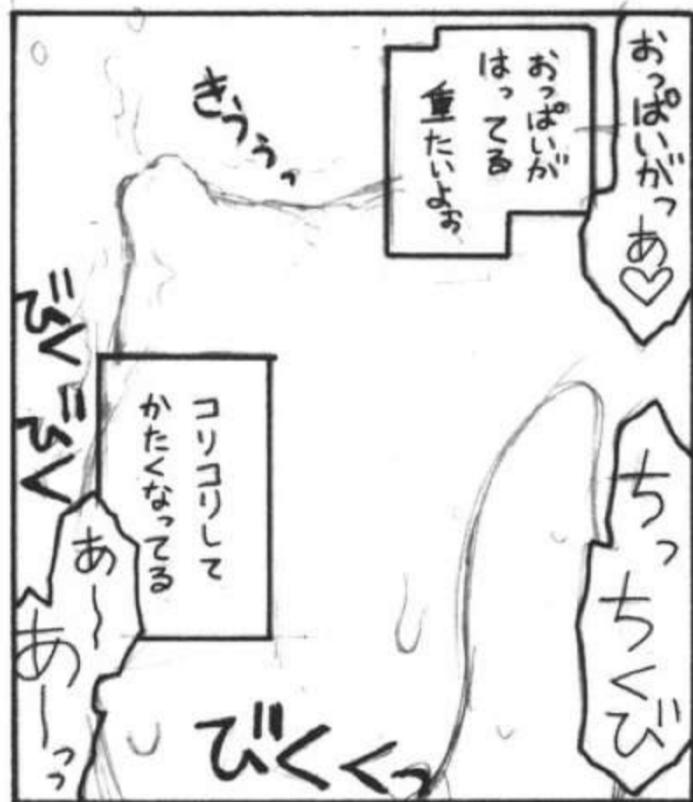 おっぱいがっ
あ♡
おっぱいが
はってる
重たいよぉ
きううっ
ちっ
ちくび
コリコリして
かたくなってる
びく
びく
あ~
あーっっ
びくくっ